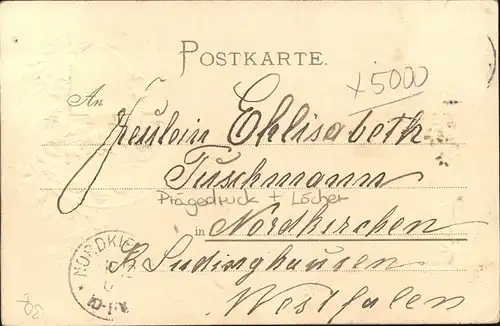 POSTKARTE.
x5000
An
Fräulein Ehlisabeth
Tuschmann
Prägedruck + Löcher
in Nordkirchen
Ludinghausen
Westfalen
NORDKI
30,-